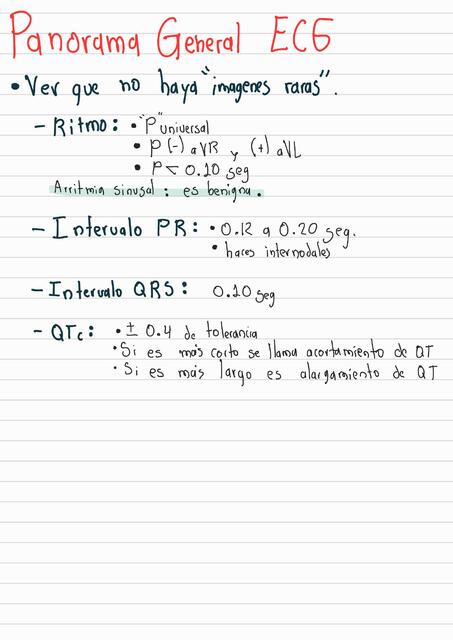 Panorama General ECG
• Ver que no haya "imagenes raras".
- Ritmo: • "P" universal
• P (-) aVR y (+) aVL
• P < 0.10 seg
Arritmia sinusal : es benigna.
- Intervalo PR: • 0.12 a 0.20 seg.
• haces internodales
- Intervalo QRS: 0.10 seg
- QTc: • ± 0.4 de tolerancia
• Si es más corto se llama acortamiento de QT
• Si es más largo es alargamiento de QT